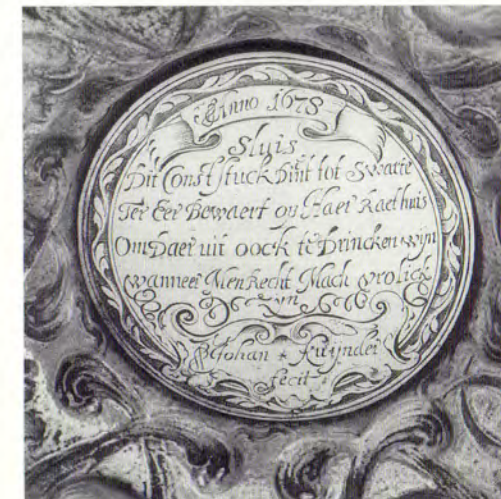 Anno 1678
Sluis
Dit Conststuck Dint tot Swarte
Ter Eer Bewaert op Haer Raethuis
Om Daer uit oock te Drincken wijn
wanneer Men Recht Mach vrolick
zyn
Johan Kuijnder
fecit